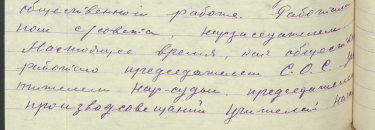 общественной работе. Работала
ном с/совета, нарзаседателем
Настоящее время, как общест
работаю председателем С.О.С.
тителем нар-судьи, председателем
производсовещаний учителей